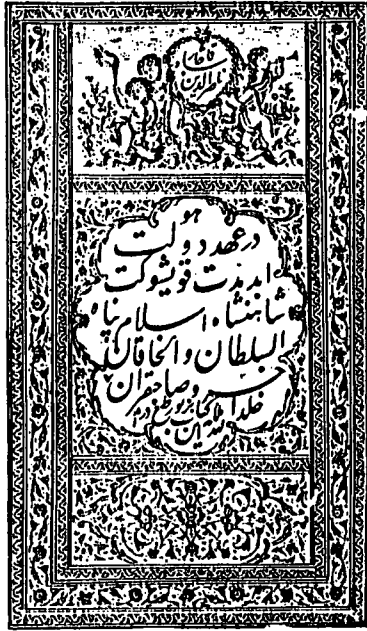 ناصرالدین
شاه قاجار
هو
در عهد دولت
ابد مدت قویشوکت
شاهنشاه اسلام پناه
السلطان و الخاقان
خسرو صاحبقران
خلد الله ملکه